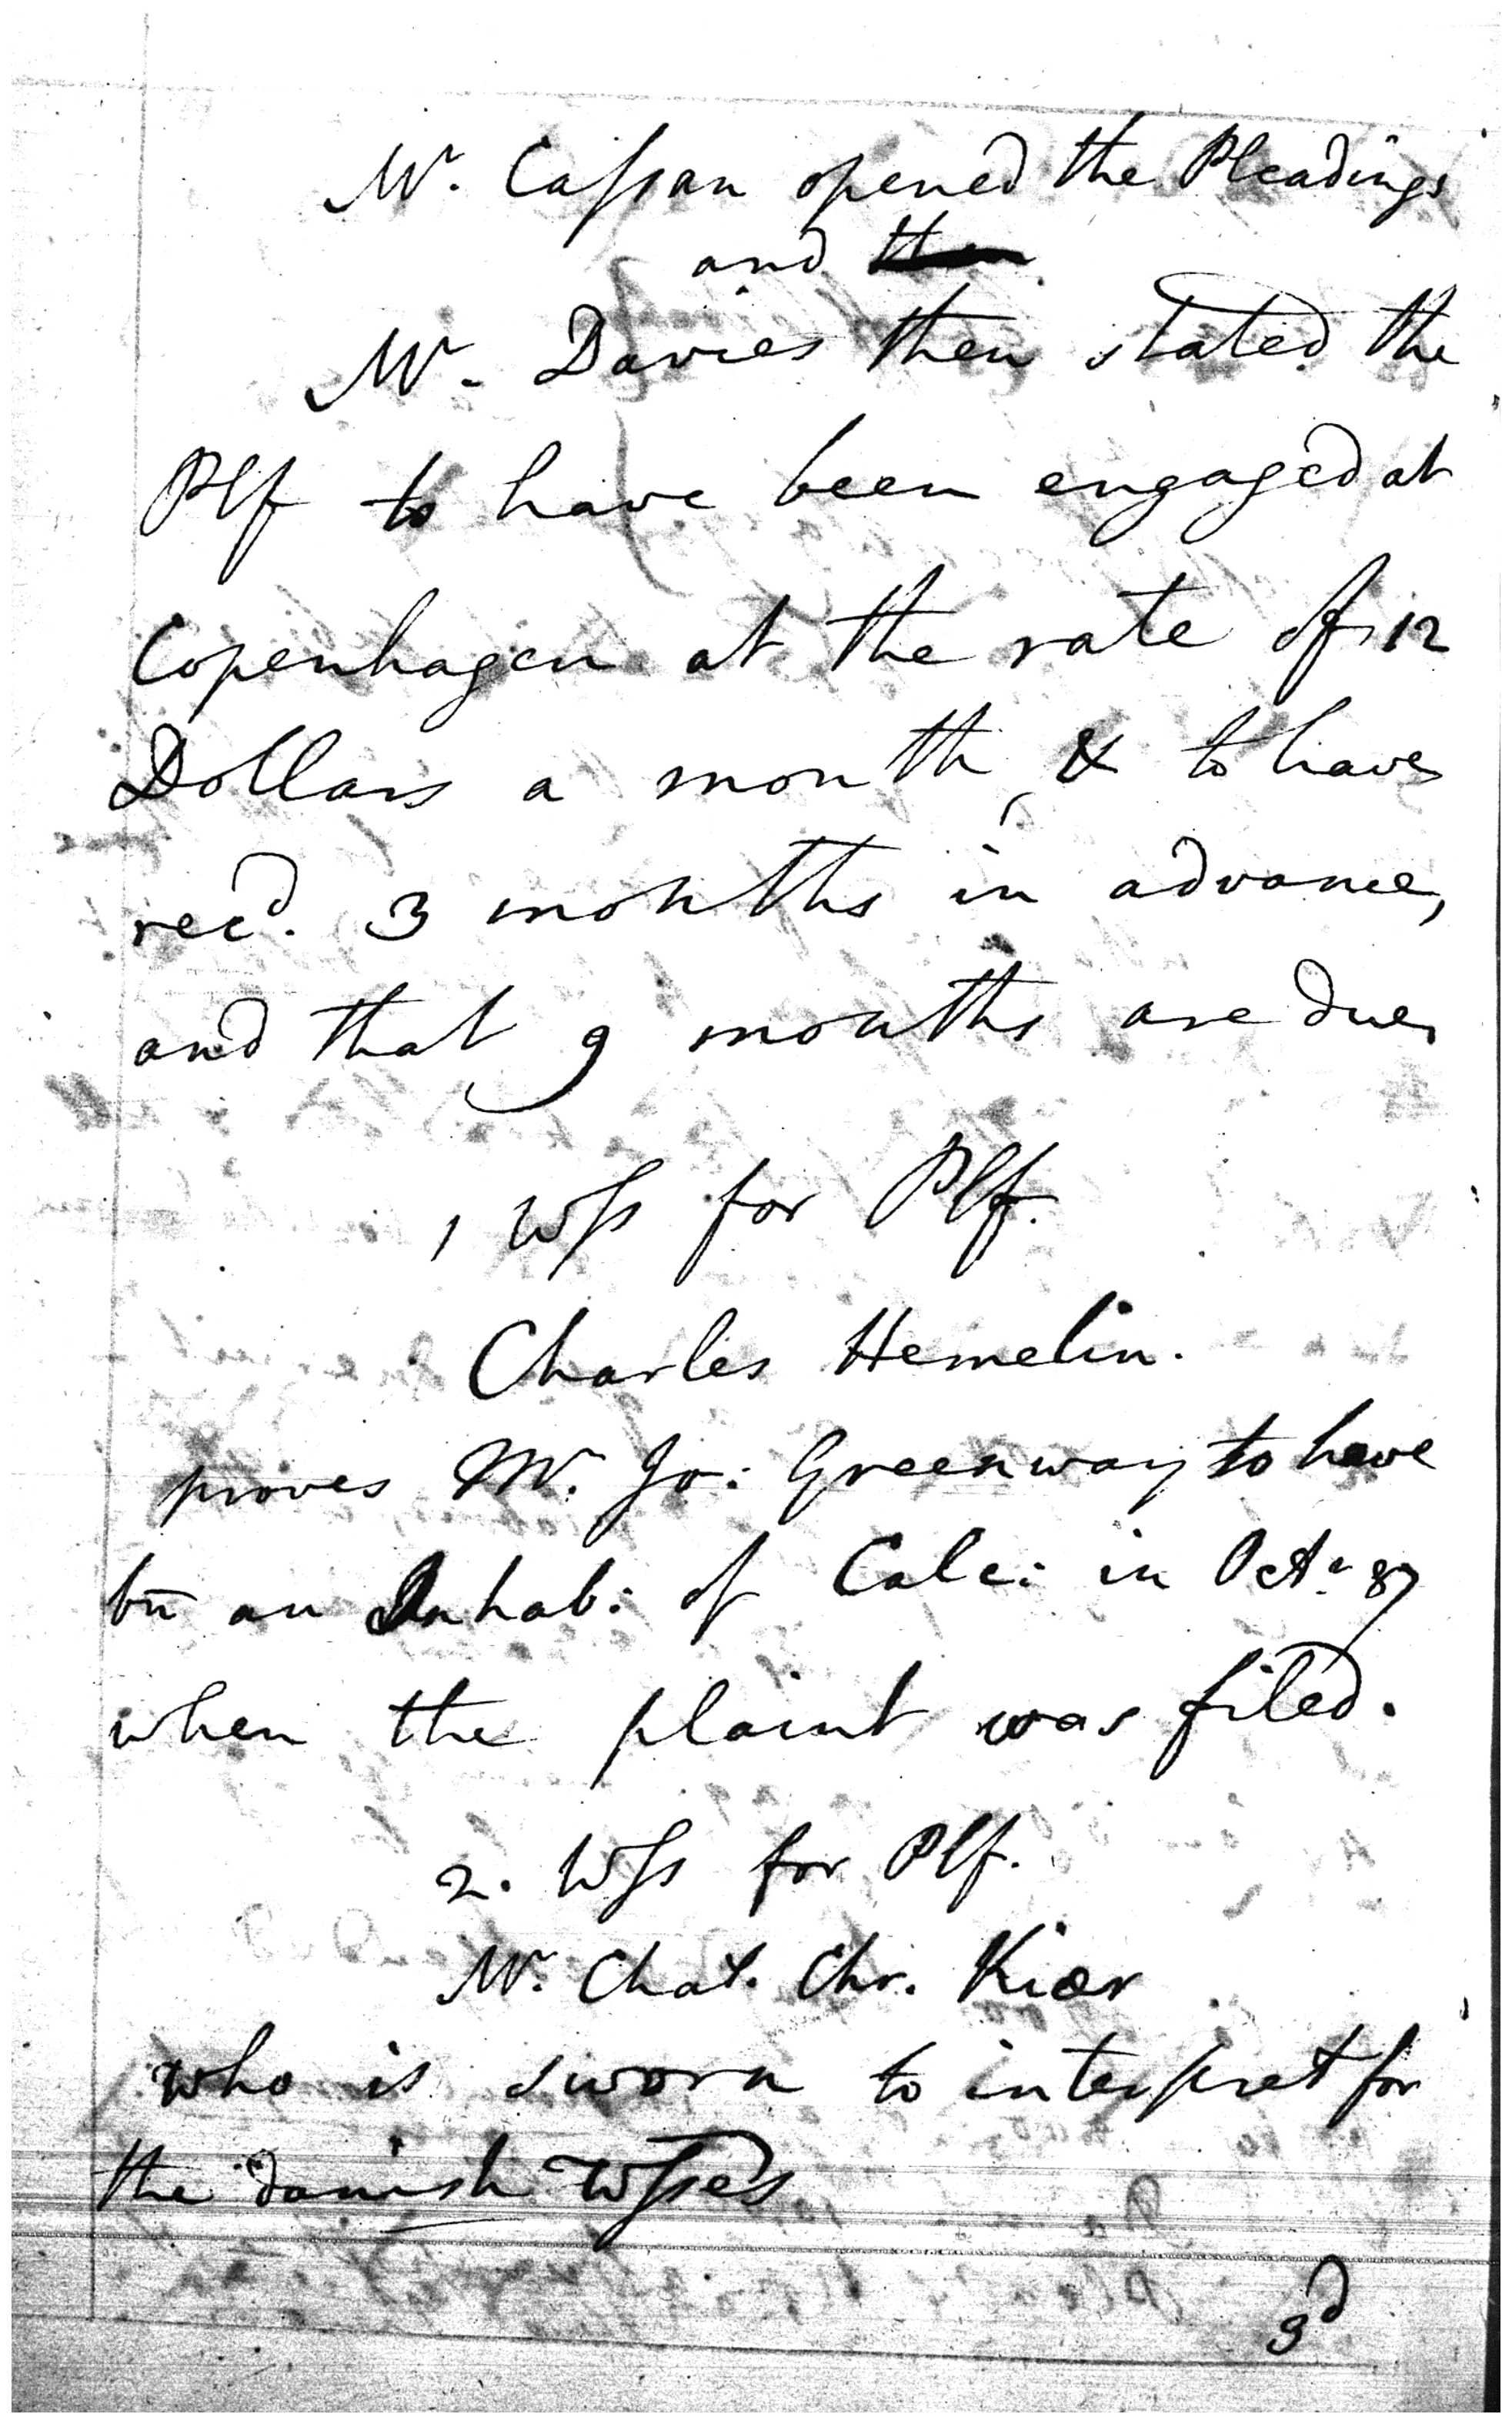 Mr. Caſsan opened the Pleadings
and then
Mr. Davies then stated the
Plf to have been engaged at
Copenhagen at the rate of 12
Dollars a month, & to have
recd. 3 months in advance,
and that 9 months are due,
1 Wſs for Plf.
Charles Hemelin.
proves Mr. Jo: Greenway to have
bn an Inhab: of Calc: in Octr 87
when the plaint was filed.
2. Wſs for Plf.
Mr. Chas. Chr. Kiær
who is sworn to interpret for
the danish Wſses
3d